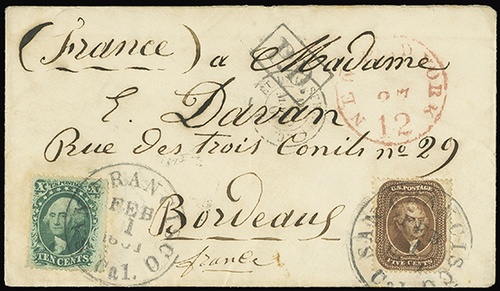 (France) a Madame
E. Davan
Rue des Trois Conils nº 29
Bordeaux
france
PD
NEW YORK
12
X U.S. POSTAGE X
TEN CENTS
SAN FRANCISCO
FEB
1
1861
Cal.
U.S. POSTAGE
FIVE CENTS
SAN FRANCISCO
Cal.